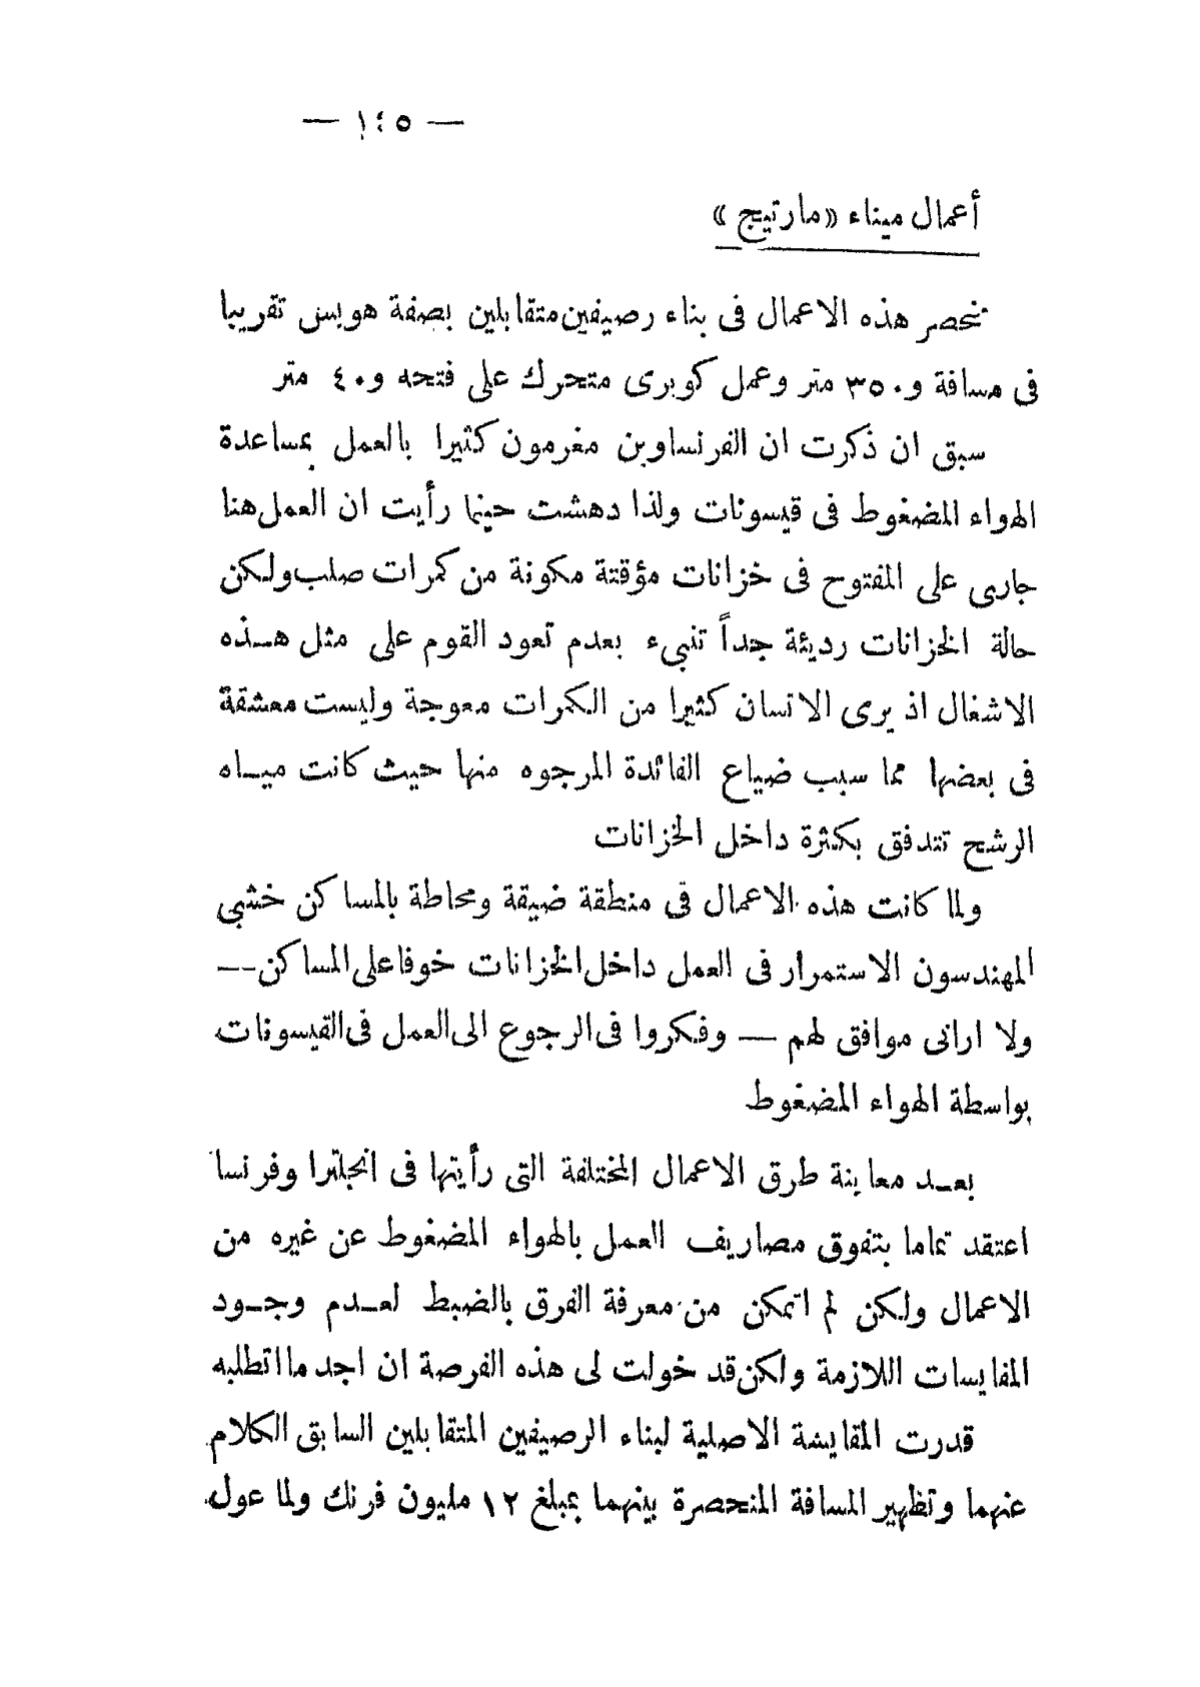 — ١٤٥ —
أعمال ميناء «مارتيج»
تنحصر هذه الاعمال فى بناء رصيفين متقابلين بصفة هويس تقريبا
فى مسافة و٣٥٠ متر وعمل كوبرى متحرك على فتحه و٤٠ متر
سبق ان ذكرت ان الفرنساوين مغرمون كثيرا بالعمل بمساعدة
الهواء المضغوط فى قيسونات ولذا دهشت حينما رأيت ان العمل هنا
جارى على المفتوح فى خزانات مؤقتة مكونة من كمرات صلب ولكن
حالة الخزانات رديئة جداً تنبىء بعدم تعود القوم على مثل هـذه
الاشغال اذ يرى الانسان كثيرا من الكمرات معوجة وليست معشقة
فى بعضها مما سبب ضياع الفائدة المرجوه منها حيث كانت ميـاه
الرشح تتدفق بكثرة داخل الخزانات
ولما كانت هذه الاعمال فى منطقة ضيقة ومحاطة بالمساكن خشى
المهندسون الاستمرار فى العمل داخل الخزانات خوفا على المساكن —
ولا ارانى موافق لهم — وفكروا فى الرجوع الى العمل فى القيسونات
بواسطة الهواء المضغوط
بعـد معاينة طرق الاعمال المختلفة التى رأيتها فى انجلترا وفرنسا
اعتقد تماما بتفوق مصاريف العمل بالهواء المضغوط عن غيره من
الاعمال ولكن لم اتمكن من معرفة الفرق بالضبط لعـدم وجـود
المقايسات اللازمة ولكن قد خولت لى هذه الفرصة ان اجد ما اتطلبه
قدرت المقايشة الاصلية لبناء الرصيفين المتقابلين السابق الكلام
عنهما وتظهير المسافة المنحصرة بينهما بمبلغ ١٢ مليون فرنك ولما عول